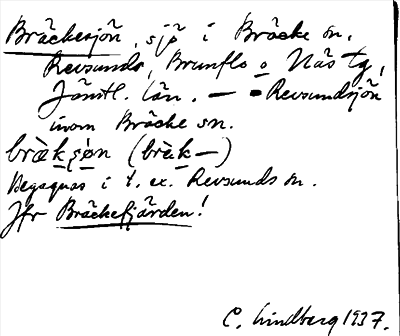 Bräckesjön, sjö i Bräcke sn,
Revsunds, Brunflo o Näs tg,
Jämtl. län. — = Revsundsjön
inom Bräcke sn.
brækṣøn (bræk—)
Begagnas i t. ex. Revsunds sn.
Jfr Bräckefjärden!
C. Lindberg 1937.